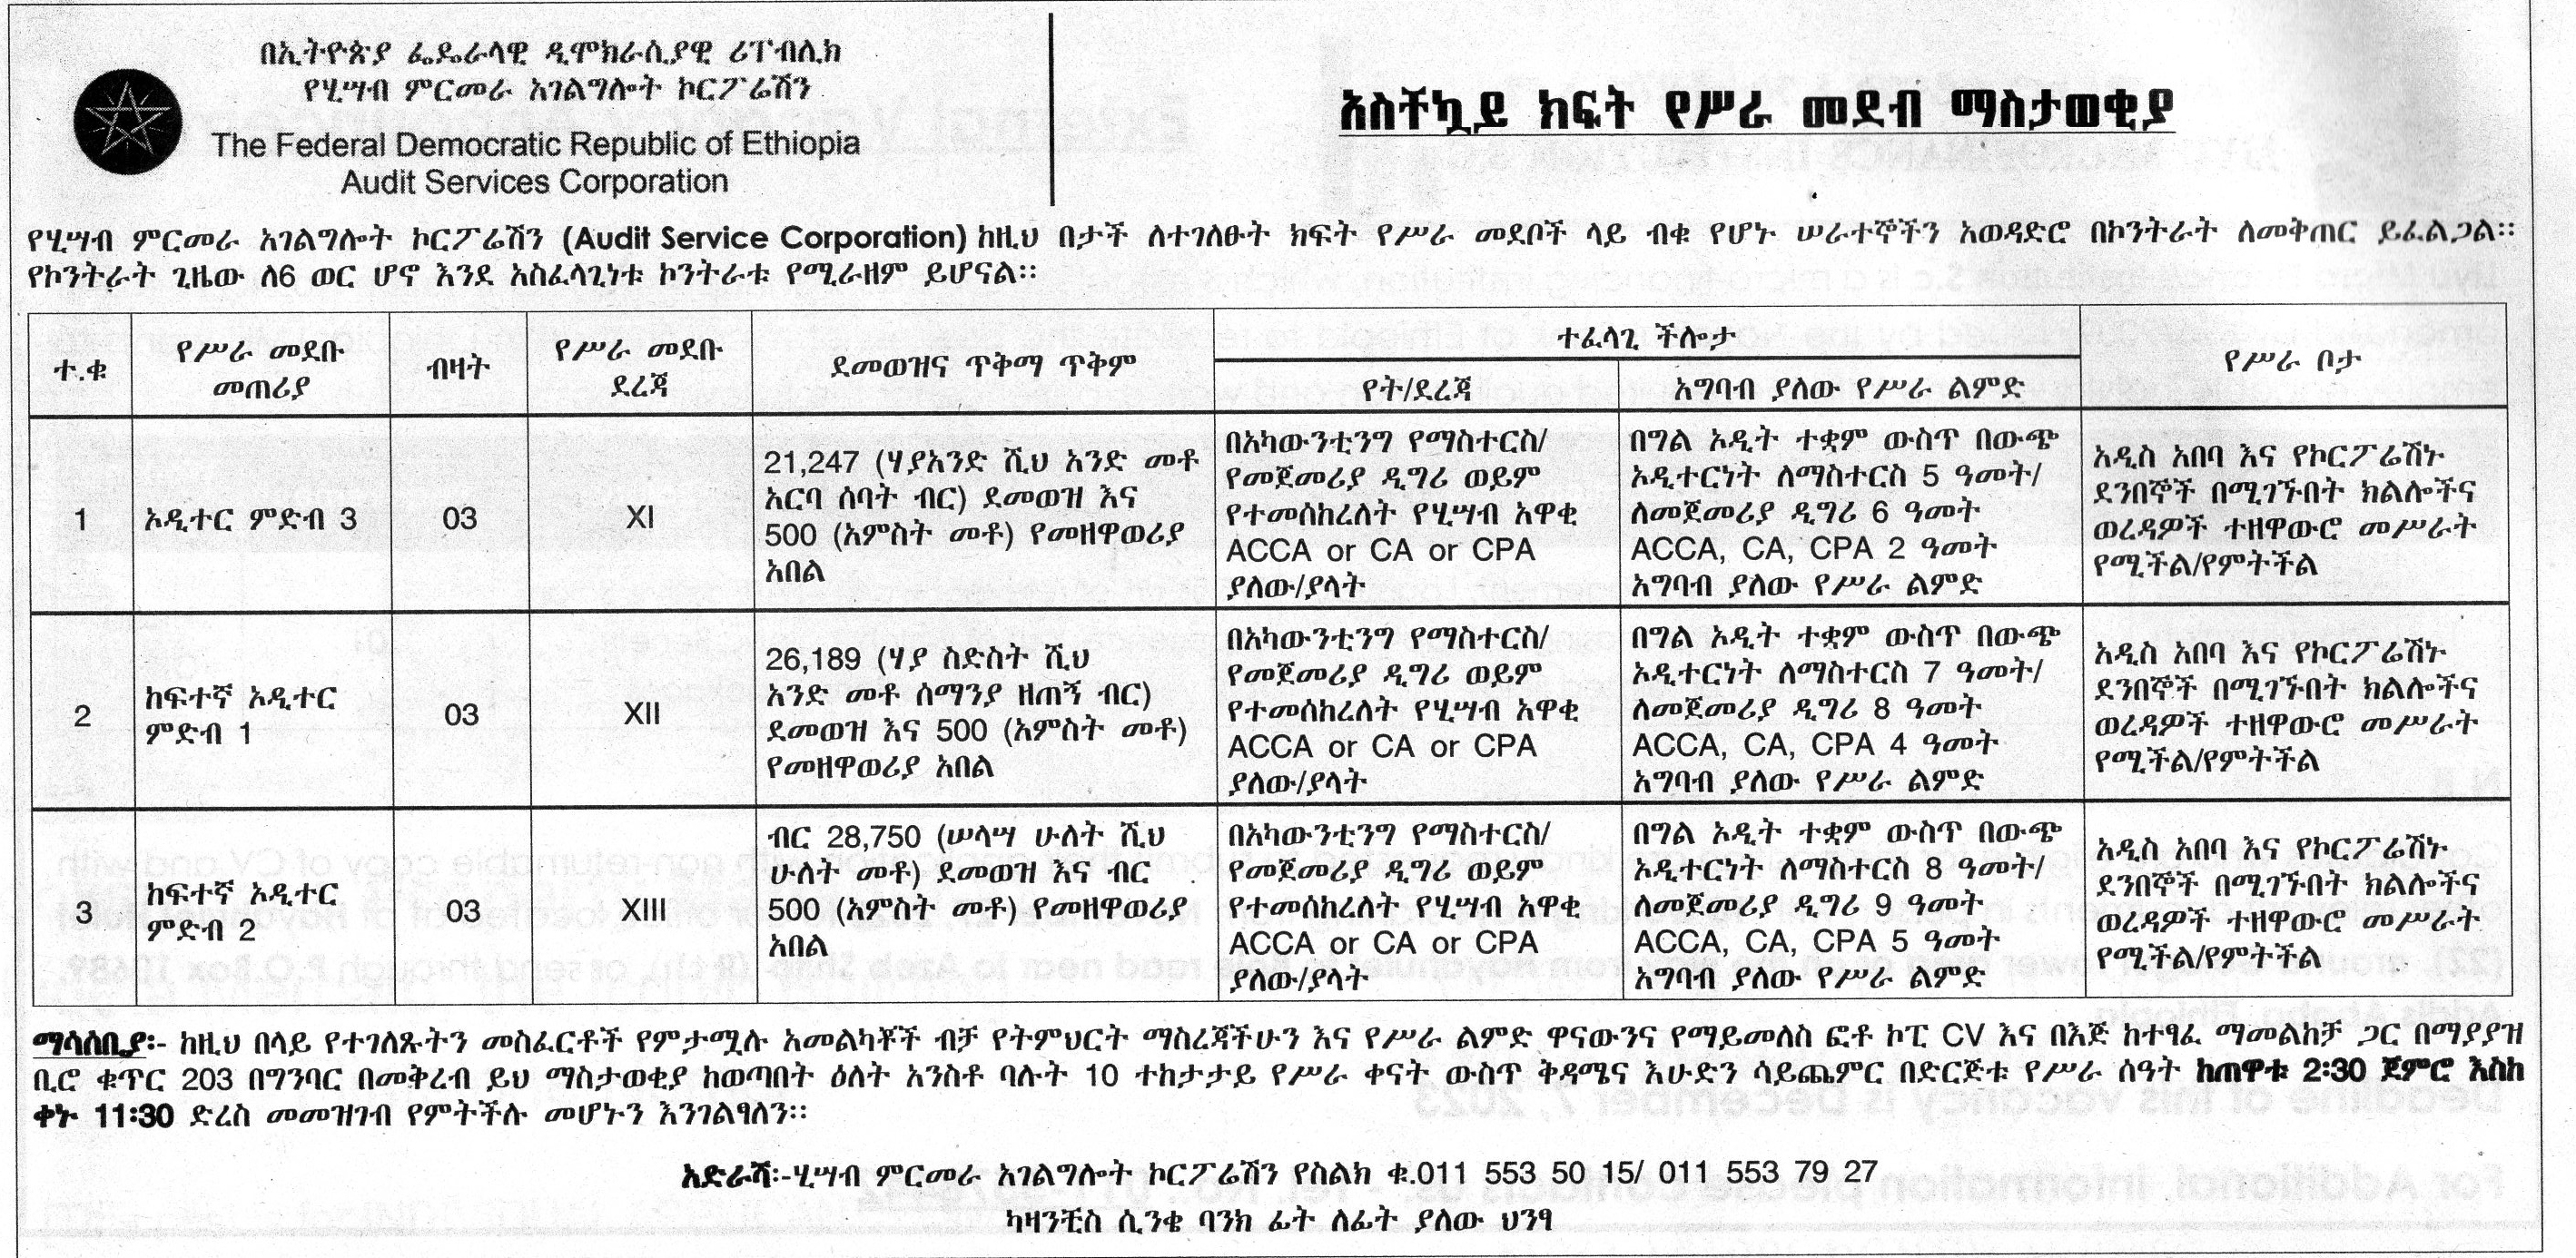 በኢትዮጵያ ፌዴራላዊ ዲሞክራሲያዊ ሪፐብሊክ
የሂሣብ ምርመራ አገልግሎት ኮርፖሬሽን
The Federal Democratic Republic of Ethiopia
Audit Services Corporation
አስቸኳይ ክፍት የሥራ መደብ ማስታወቂያ
የሂሣብ ምርመራ አገልግሎት ኮርፖሬሽን (Audit Service Corporation) ከዚህ በታች ለተገለፁት ክፍት የሥራ መደቦች ላይ ብቁ የሆኑ ሠራተኞችን አወዳድሮ በኮንትራት ለመቅጠር ይፈልጋል።
የኮንትራት ጊዜው ለ6 ወር ሆኖ እንደ አስፈላጊነቱ ኮንትራቱ የሚራዘም ይሆናል።
ተ.ቁ
የሥራ መደቡ
መጠሪያ
ብዛት
የሥራ መደቡ
ደረጃ
ደመወዝና ጥቅማ ጥቅም
ተፈላጊ ችሎታ
የት/ደረጃ
አግባብ ያለው የሥራ ልምድ
የሥራ ቦታ
1
ኦዲተር ምድብ 3
03
XI
21,247 (ሃያአንድ ሺህ አንድ መቶ
አርባ ሰባት ብር) ደመወዝ እና
500 (አምስት መቶ) የመዘዋወሪያ
አበል
በአካውንቲንግ የማስተርስ/
የመጀመሪያ ዲግሪ ወይም
የተመሰከረለት የሂሣብ አዋቂ
ACCA or CA or CPA
ያለው/ያላት
በግል ኦዲት ተቋም ውስጥ በውጭ
ኦዲተርነት ለማስተርስ 5 ዓመት/
ለመጀመሪያ ዲግሪ 6 ዓመት
ACCA, CA, CPA 2 ዓመት
አግባብ ያለው የሥራ ልምድ
አዲስ አበባ እና የኮርፖሬሽኑ
ደንበኞች በሚገኙበት ክልሎችና
ወረዳዎች ተዘዋውሮ መሥራት
የሚችል/የምትችል
2
ከፍተኛ ኦዲተር
ምድብ 1
03
XII
26,189 (ሃያ ስድስት ሺህ
አንድ መቶ ሰማንያ ዘጠኝ ብር)
ደመወዝ እና 500 (አምስት መቶ)
የመዘዋወሪያ አበል
በአካውንቲንግ የማስተርስ/
የመጀመሪያ ዲግሪ ወይም
የተመሰከረለት የሂሣብ አዋቂ
ACCA or CA or CPA
ያለው/ያላት
በግል ኦዲት ተቋም ውስጥ በውጭ
ኦዲተርነት ለማስተርስ 7 ዓመት/
ለመጀመሪያ ዲግሪ 8 ዓመት
ACCA, CA, CPA 4 ዓመት
አግባብ ያለው የሥራ ልምድ
አዲስ አበባ እና የኮርፖሬሽኑ
ደንበኞች በሚገኙበት ክልሎችና
ወረዳዎች ተዘዋውሮ መሥራት
የሚችል/የምትችል
3
ከፍተኛ ኦዲተር
ምድብ 2
03
XIII
ብር 28,750 (ሠላሣ ሁለት ሺህ
ሁለት መቶ) ደመወዝ እና ብር
500 (አምስት መቶ) የመዘዋወሪያ
አበል
በአካውንቲንግ የማስተርስ/
የመጀመሪያ ዲግሪ ወይም
የተመሰከረለት የሂሣብ አዋቂ
ACCA or CA or CPA
ያለው/ያላት
በግል ኦዲት ተቋም ውስጥ በውጭ
ኦዲተርነት ለማስተርስ 8 ዓመት/
ለመጀመሪያ ዲግሪ 9 ዓመት
ACCA, CA, CPA 5 ዓመት
አግባብ ያለው የሥራ ልምድ
አዲስ አበባ እና የኮርፖሬሽኑ
ደንበኞች በሚገኙበት ክልሎችና
ወረዳዎች ተዘዋውሮ መሥራት
የሚችል/የምትችል
ማሳሰቢያ፡- ከዚህ በላይ የተገለጹትን መስፈርቶች የምታሟሉ አመልካቾች ብቻ የትምህርት ማስረጃችሁን እና የሥራ ልምድ ዋናውንና የማይመለስ ፎቶ ኮፒ CV እና በእጅ ከተፃፈ ማመልከቻ ጋር በማያያዝ
ቢሮ ቁጥር 203 በግንባር በመቅረብ ይህ ማስታወቂያ ከወጣበት ዕለት አንስቶ ባሉት 10 ተከታታይ የሥራ ቀናት ውስጥ ቅዳሜና እሁድን ሳይጨምር በድርጅቱ የሥራ ሰዓት ከጠዋቱ 2:30 ጀምሮ እስከ
ቀኑ 11:30 ድረስ መመዝገብ የምትችሉ መሆኑን እንገልፃለን።
አድራሻ፡-ሂሣብ ምርመራ አገልግሎት ኮርፖሬሽን የስልክ ቁ.011 553 50 15/ 011 553 79 27
ካዛንቺስ ሲንቄ ባንክ ፊት ለፊት ያለው ህንፃ